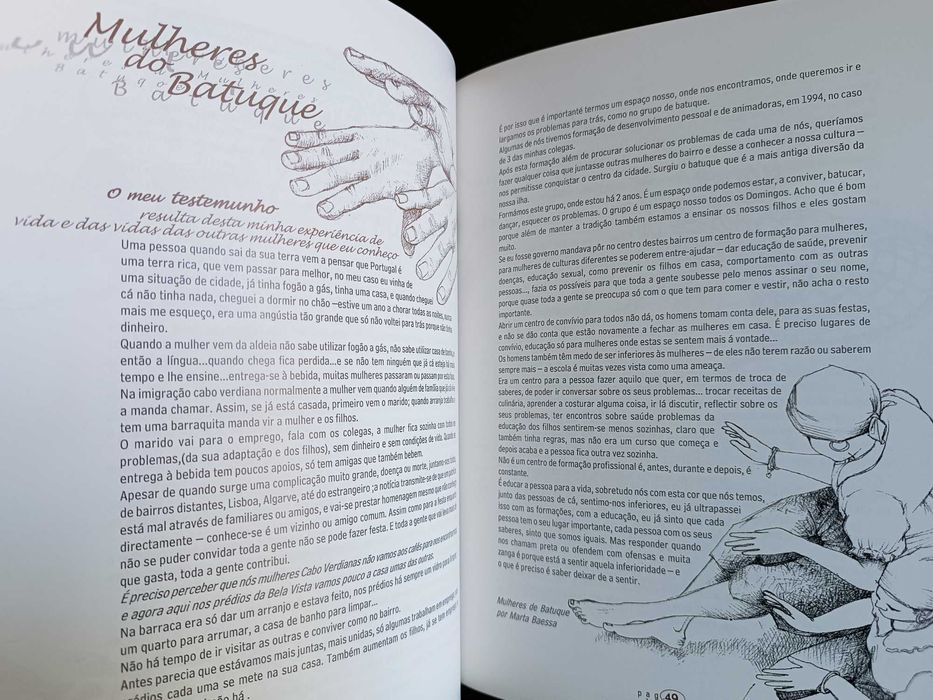 Mulheres
do
Batuque
O meu testemunho
resulta desta minha experiência de
vida e das vidas das outras mulheres que eu conheço
Uma pessoa quando sai da sua terra vem a pensar que Portugal é
uma terra rica, que vem passar para melhor, no meu caso eu vinha de
uma situação de cidade, já tinha fogão a gás, tinha uma casa, e quando cheguei
cá não tinha nada, cheguei a dormir no chão –estive um ano a chorar todas as noites, nunca
mais me esqueço, era uma angústia tão grande que só não voltei para trás porque não tinha
dinheiro.
Quando a mulher vem da aldeia não sabe utilizar fogão a gás, não sabe utilizar casa de banho,
então a língua...quando chega fica perdida...e se não tem ninguém que já cá esteja há
tempo e lhe ensine...entrega-se à bebida, muitas mulheres passaram ou passam por esta
Na imigração cabo verdiana normalmente a mulher vem quando alguém de família que já cá
a manda chamar. Assim, se já está casada, primeiro vem o marido; quando arranja trabalho
tem uma barraquita manda vir a mulher e os filhos.
O marido vai para o emprego, fala com os colegas, a mulher fica sozinha com todos os
problemas,(da sua adaptação e dos filhos), sem dinheiro e sem condições de vida. Quando
entrega à bebida tem poucos apoios, só tem amigas que também bebem.
Apesar de quando surge uma complicação muito grande, doença ou morte, juntamo-nos
de bairros distantes, Lisboa, Algarve, até do estrangeiro ;a notícia transmite-se de que
está mal através de familiares ou amigos, e vai-se prestar homenagem mesmo que não
directamente – conhece-se é um vizinho ou amigo comum. Assim como para a festa
não se puder convidar toda a gente não se pode fazer festa. E toda a gente que vai
que gasta, toda a gente contribui.
É preciso perceber que nós mulheres Cabo Verdianas não vamos aos cafés para nos encontrarmos
e agora aqui nos prédios da Bela Vista vamos pouco a casa umas das outras.
Na barraca era só dar um arranjo e estava feito, nos prédios há sempre um vidro para
um quarto para arrumar, a casa de banho para limpar...
Não há tempo de ir visitar as outras e conviver como no bairro.
Antes parecia que estávamos mais juntas, mais unidas, só algumas trabalham em
prédios cada uma se mete na sua casa. Também aumentam os filhos, já se tem
É por isso que é importanté termos um espaço nosso, onde nos encontramos, onde queremos ir e
largamos os problemas para trás, como no grupo de batuque.
Algumas de nós tivemos formação de desenvolvimento pessoal e de animadoras, em 1994, no caso
de 3 das minhas colegas.
Após esta formação além de procurar solucionar os problemas de cada uma de nós, queríamos
fazer qualquer coisa que juntasse outras mulheres do bairro e desse a conhecer a nossa cultura –
nos permitisse conquistar o centro da cidade. Surgiu o batuque que é a mais antiga diversão da
nossa ilha.
Formámos este grupo, onde estou há 2 anos. É um espaço onde podemos estar, a conviver, batucar,
dançar, esquecer os problemas. O grupo é um espaço nosso todos os Domingos. Acho que é bom
porque além de manter a tradição também estamos a ensinar os nossos filhos e eles gostam
muito.
Se eu fosse governo mandava pôr no centro destes bairros um centro de formação para mulheres,
para mulheres de culturas diferentes se poderem entre-ajudar – dar educação de saúde, prevenir
doenças, educação sexual, como prevenir os filhos em casa, comportamento com as outras
pessoas..., fazia os possíveis para que toda a gente soubesse pelo menos assinar o seu nome,
porque quase toda a gente se preocupa só com o que tem para comer e vestir, não acha o resto
importante.
Abrir um centro de convívio para todos não dá, os homens tomam conta dele, para as suas festas,
e não se dão conta que estão novamente a fechar as mulheres em casa. É preciso lugares de
convívio, educação só para mulheres onde estas se sentem mais á vontade...
Os homens também têm medo de ser inferiores às mulheres – de eles não terem razão ou saberem
sempre mais – a escola é muitas vezes vista como uma ameaça.
Era um centro para a pessoa fazer aquilo que quer, em termos de troca de
saberes, de poder ir conversar sobre os seus problemas... trocar receitas de
culinária, aprender a costurar alguma coisa, ir lá discutir, reflectir sobre os
seus problemas, ter encontros sobre saúde problemas da
educação dos filhos sentirem-se menos sozinhas, claro que
também tinha regras, mas não era um curso que começa e
depois acaba e a pessoa fica outra vez sozinha.
Não é um centro de formação profissional é, antes, durante e depois, é
constante.
É educar a pessoa para a vida, sobretudo nós com esta cor que nós temos,
junto das pessoas de cá, sentimo-nos inferiores, eu já ultrapassei
isso com as formações, com a educação, eu já sinto que cada
pessoa tem o seu lugar importante, cada pessoa com os seus
saberes, sinto que somos iguais. Mas responder quando
nos chamam preta ou ofendem com ofensas e muita
zanga é porque está a sentir aquela inferioridade – e
o que é preciso é saber deixar de a sentir.
Mulheres de Batuque
por Marta Baessa
pag 49